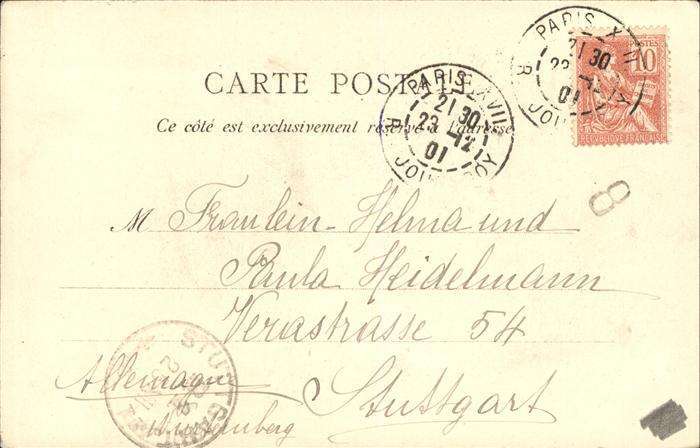 CARTE POSTALE
Ce côté est exclusivement réservé à l'adresse
PARIS XVII
21 30
23 -12
01
R. JOUFFROY
PARIS XVII
21 30
23 -12
01
R. JOU
POSTES
10
REPUBLIQUE FRANÇAISE
8
M Fräulein Helma und
Paula Heidelmann
Verastrasse 54
Stuttgart
Allemagne
Wurtemberg
STUTTG